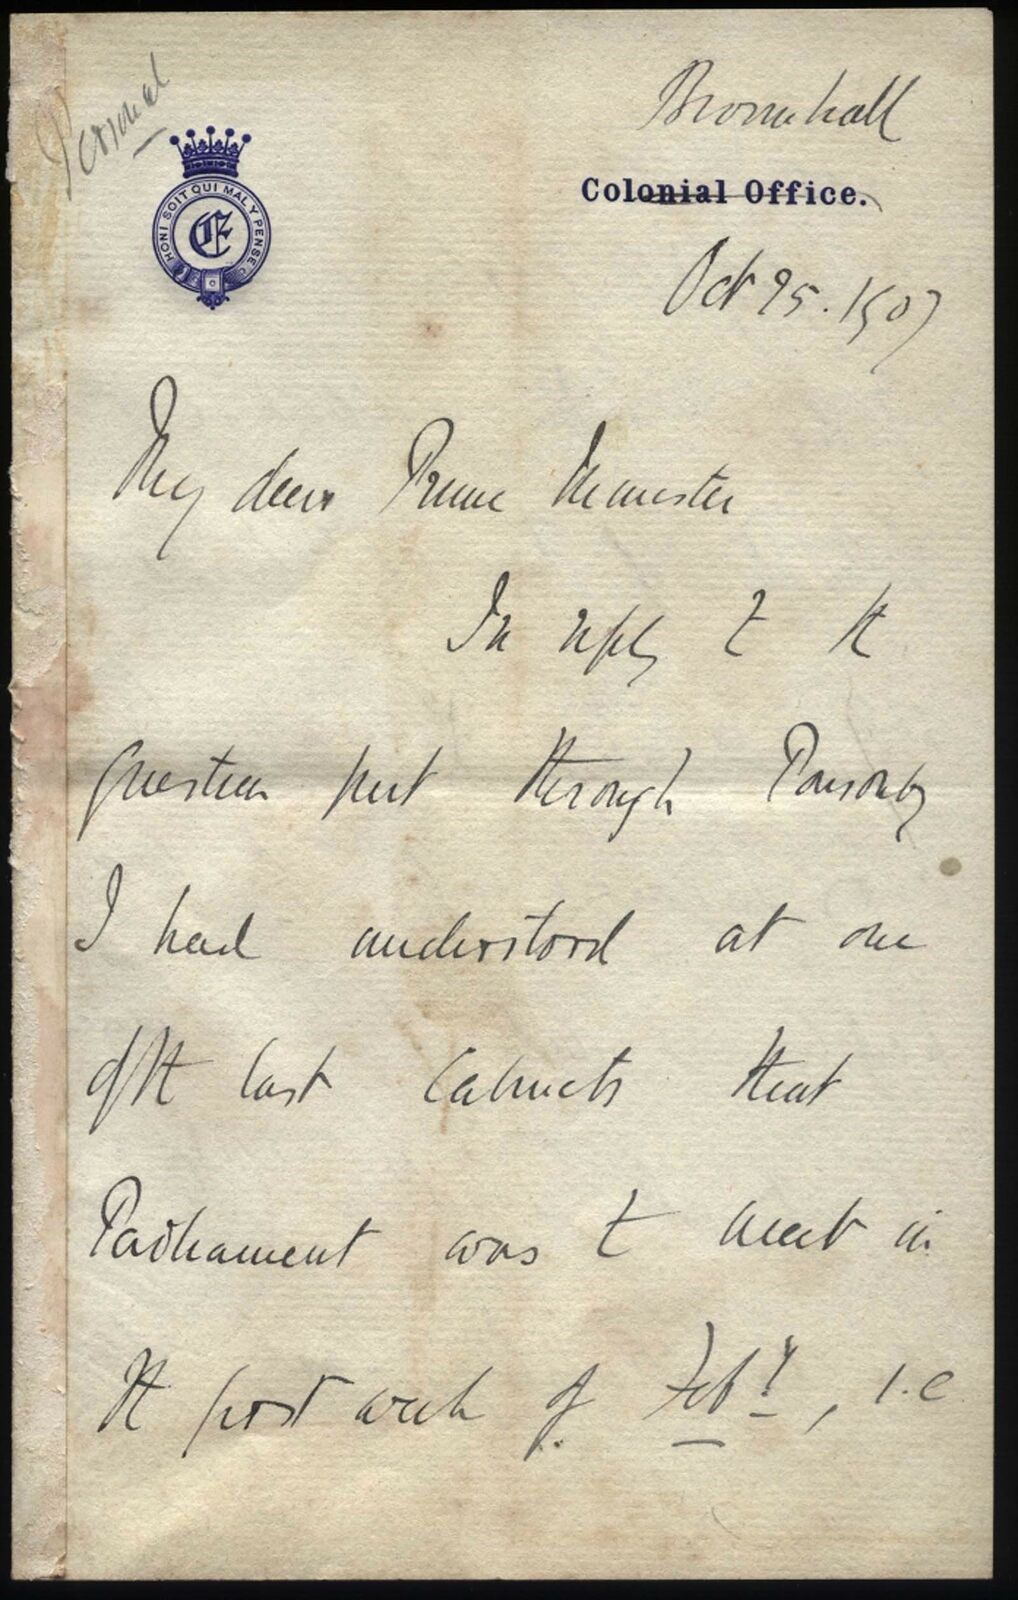 Personal
Broomhall
HONI SOIT QUI MAL Y PENSE
E
Colonial Office.
Oct 25. 1907
My dear Prime Minister
In reply to the
question put through Ponsonby
I had understood at one
of the last Cabinets that
Parliament was to meet in
the first week of Feby, i.e